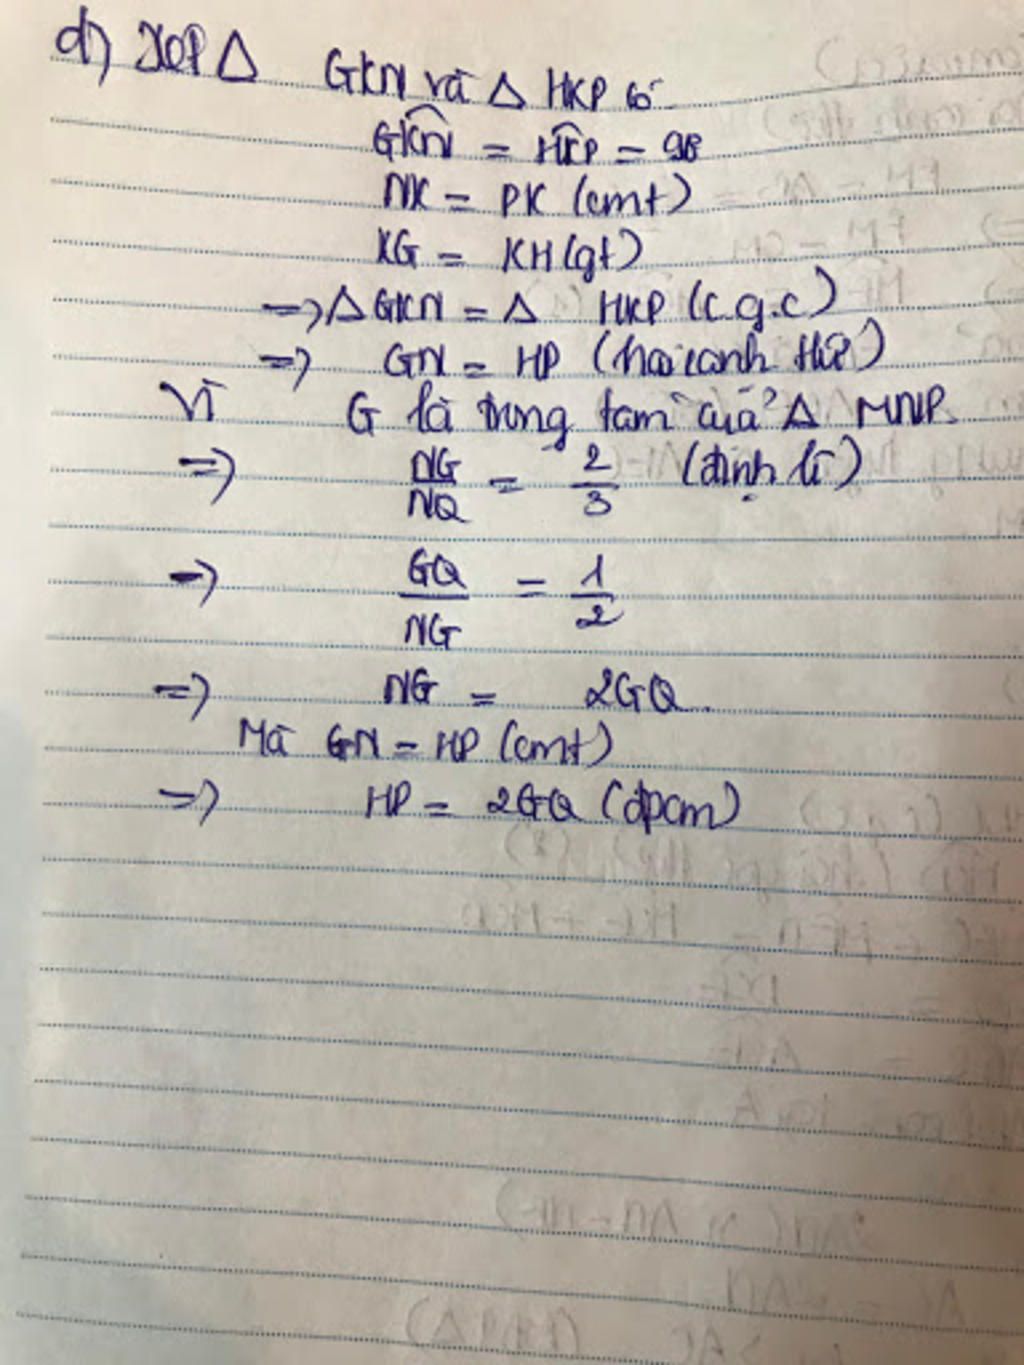 d) Xét Δ GKN và Δ HKP có
GKN̂ = HKP̂ = 90
NK = PK (cmt)
KG = KH (gt)
=> Δ GKN = Δ HKP (c.g.c)
=> GN = HP (hai cạnh t/ứ)
Vì G là trọng tâm của Δ MNP.
=> NG/NQ = 2/3 (định lí)
=> GQ/NG = 1/2
=> NG = 2GQ.
Mà GN = HP (cmt)
=> HP = 2GQ (đpcm)